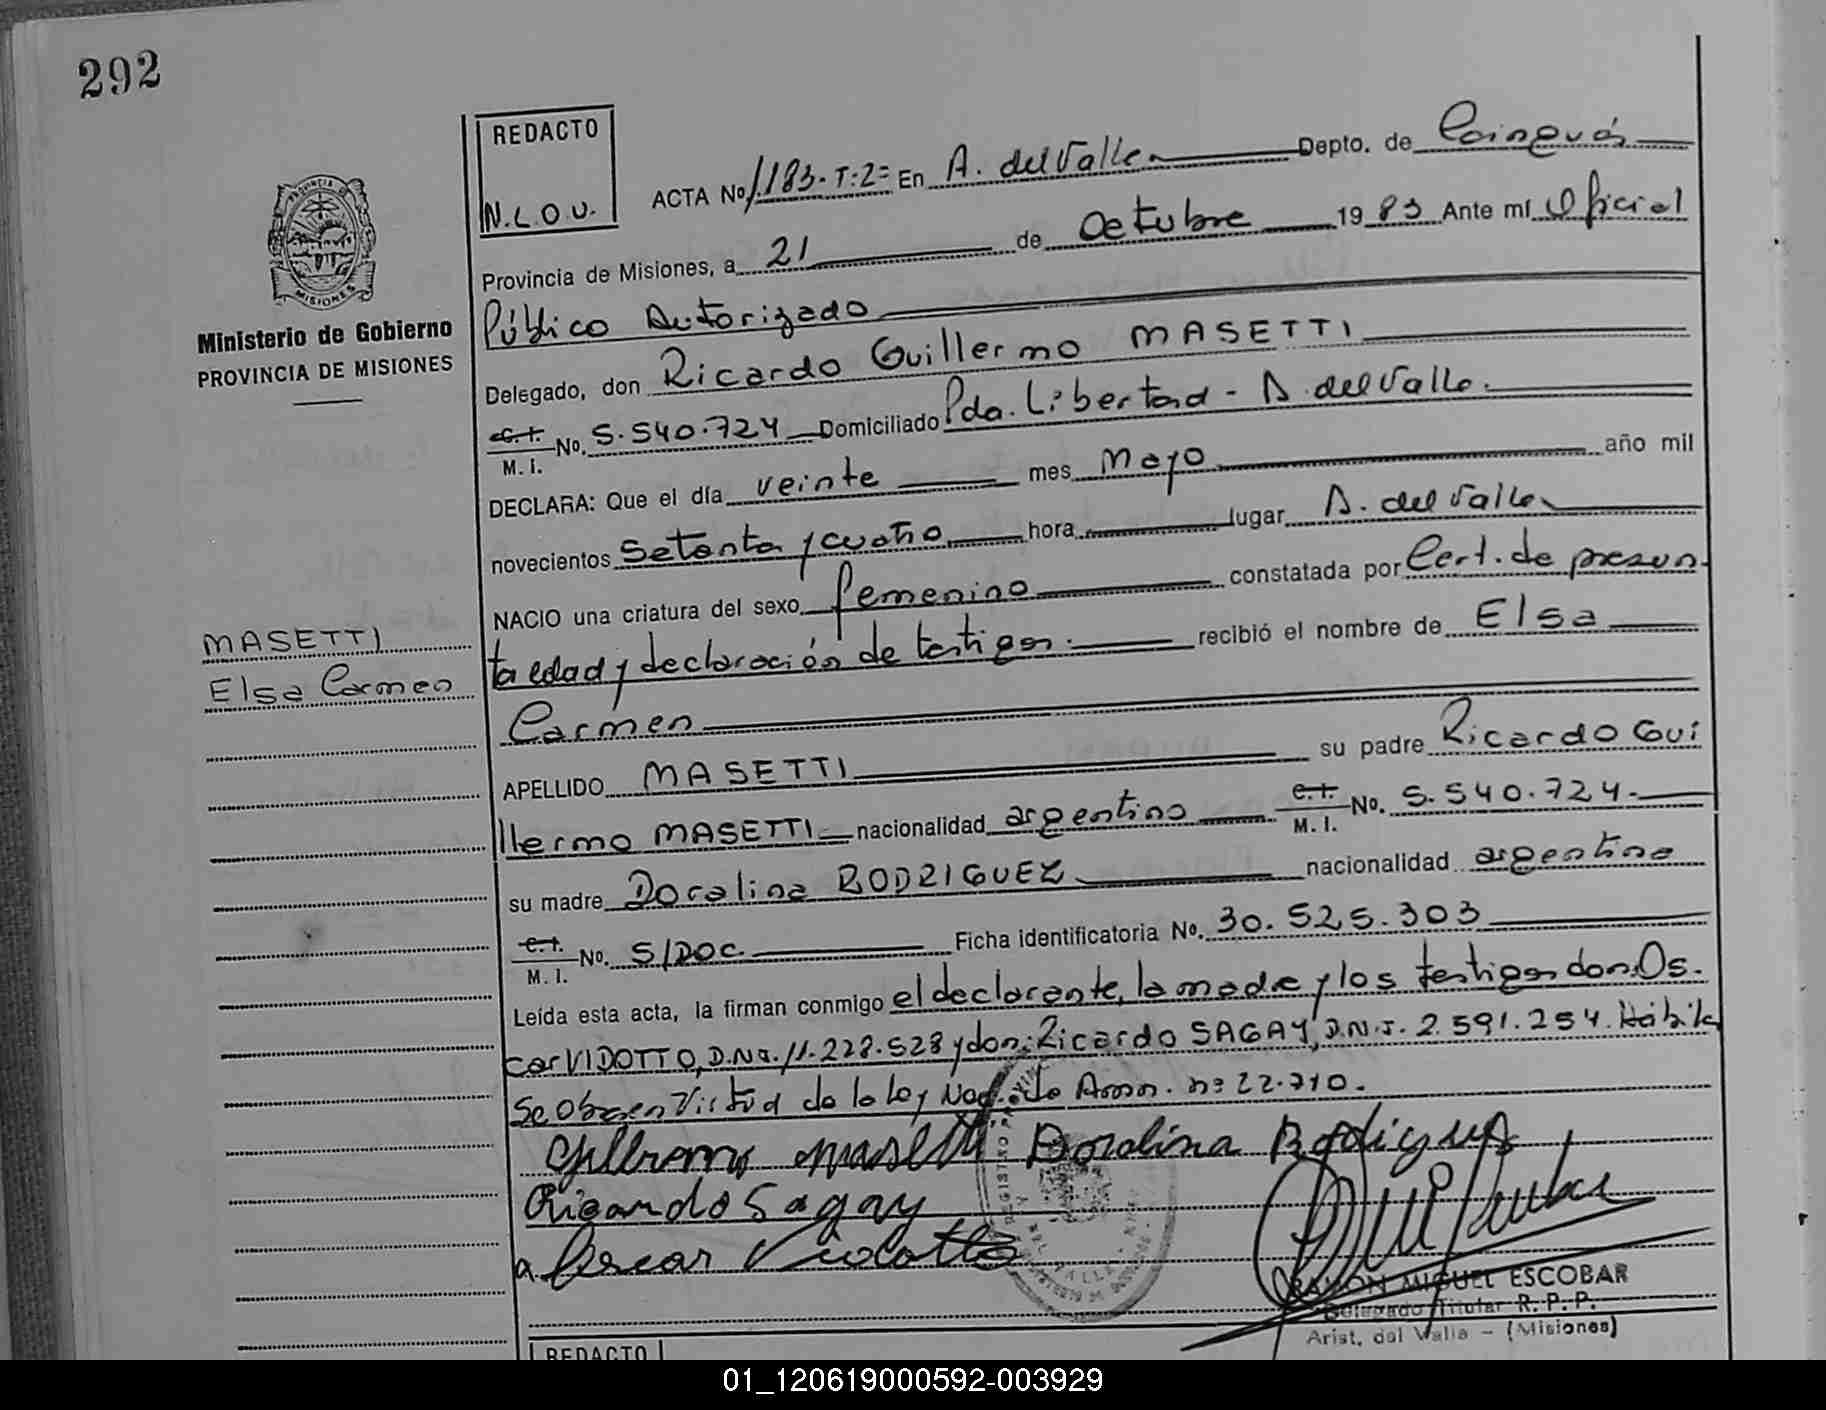 292
REDACTO
N.L.O.U.
ACTA No 1.183-T:2= En A. del Valle Depto. de Cainguás
Provincia de Misiones, a 21 de Octubre 1983 Ante mí Oficial
Público Autorizado
Delegado, don Ricardo Guillermo MASETTI
C.I. M.I. No. 5.540.724 Domiciliado Pda. Libertad - A. del Valle.
DECLARA: Que el día veinte mes Mayo año mil
novecientos setenta y cuatro hora lugar A. del Valle
NACIO una criatura del sexo femenino constatada por Cert. de presun-
ta edad y declaración de testigos. recibió el nombre de Elsa
Carmen
APELLIDO MASETTI su padre Ricardo Gui
llermo MASETTI nacionalidad argentino C.I. M.I. No. 5.540.724.
su madre Doralina RODRIGUEZ nacionalidad argentina
C.I. M.I. No. S/DOC. Ficha identificatoria No. 30.525.303
Leída esta acta, la firman conmigo el declarante, la madre y los testigos don: Os.
car VIDOTTO, D.N.I. 11.228.528 y don: Ricardo SAGAY, D.N.I. 2.591.254. Hábil
Se Obra en Virtud de la Ley Nac. de Amn. nº 22.710.
Gillermo Masetti Doralina Rodrigues
Ricardo Sagay
Oscar Vidotto
RAMON MIGUEL ESCOBAR
Delegado Titular R. P. P.
Arist. del Valle - (Misiones)
PROVINCIA DE
MISIONES
Ministerio de Gobierno
PROVINCIA DE MISIONES
MASETTI
Elsa Carmen
REDACTO
01_120619000592-003929